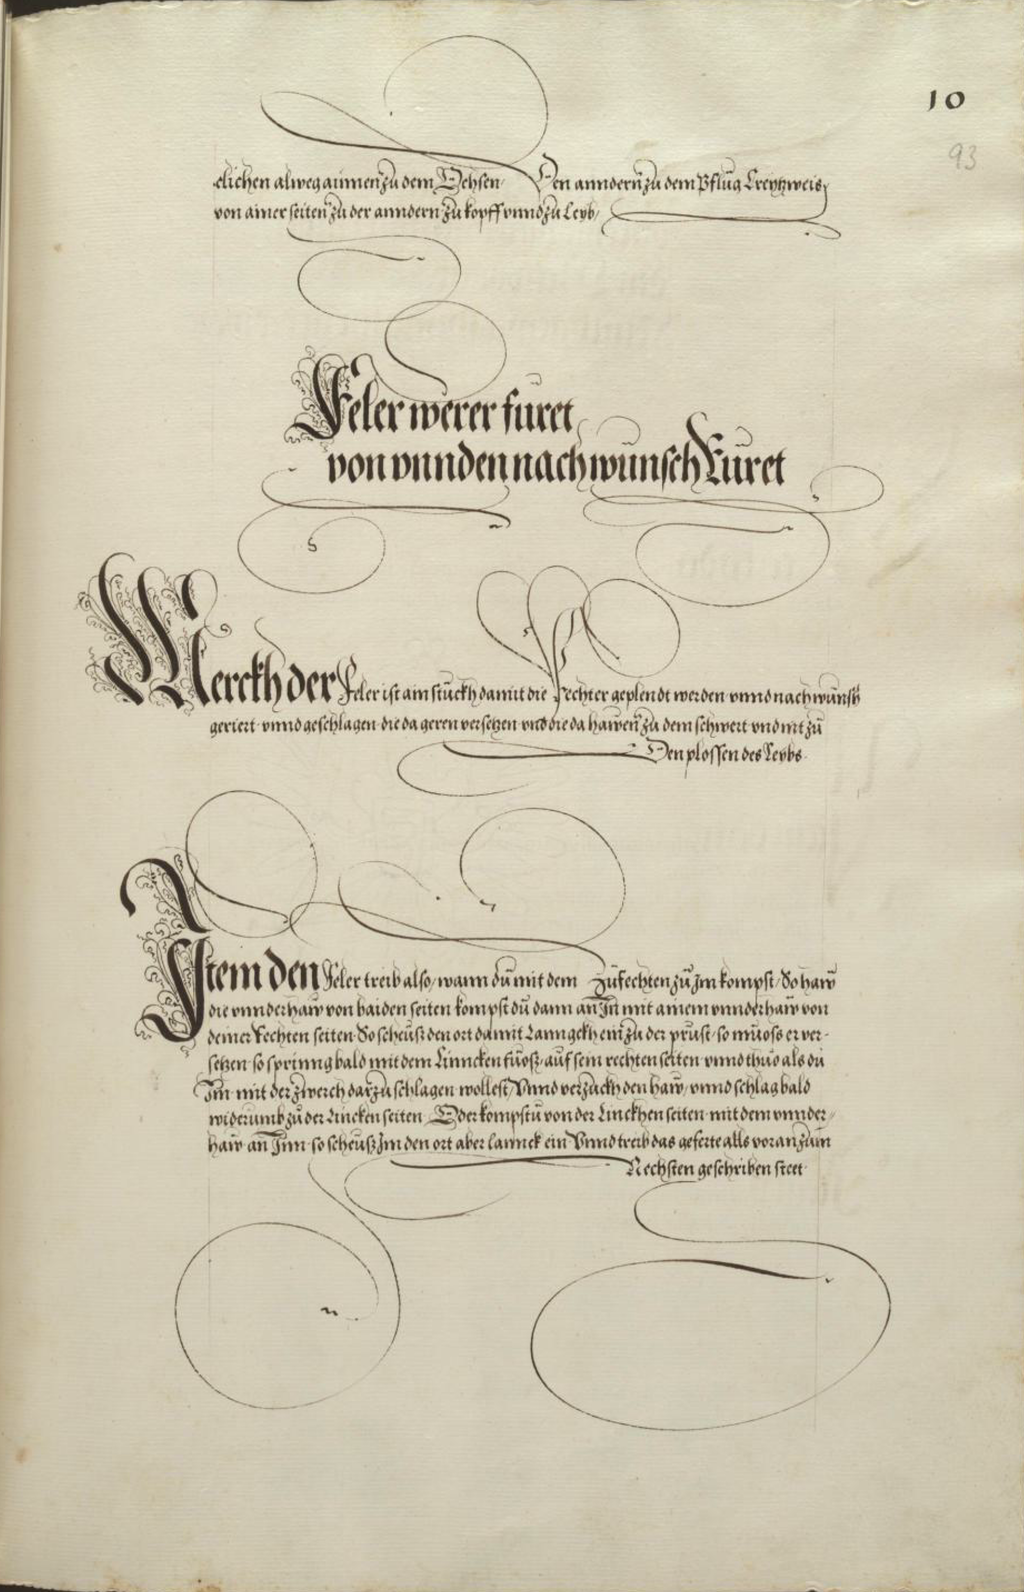 10
93
clichen alweg ainnen zu dem Ochsen Den anndern zu dem Pflug Creytzweis
von ainer seiten zu der anndern zu kopff vnnd zu Leyb
Feler werer füret
von vnnden nach wünsch Rüret
Merckh der Feler ist ain stuckh damit die Fechter geplendt werden vnnd nach wünsch
geriert vnnd geschlagen die da geren versetzen vnd die da hawen zu dem schwert vnd nit zu
Den plossen des Leybs
Item den Feler treib also / wann du mit dem Zufechten zu Im kompst / So haw
die vnnderhaw von baiden seiten kompst du dann an In mit ainem vnnderhaw von
deiner Rechten seiten So scheusz den ort damit Lanngckh ein zu der prust so muoss er ver-
setzen so sprinng bald mit dem Linncken fuosz auf sein rechten seiten vnnd thuo als du
Im mit der zwerch darzu schlagen wollest / Vnnd verzuckh den haw / vnnd schlag bald
widerumb zu der Lincken seiten Oder kompstu von der Linckhen seiten mit dem vnnder-
haw an Inn so scheusz Im den ort aber lannck ein Vnnd treib das geferte alls voran zum
Nechsten geschriben steet